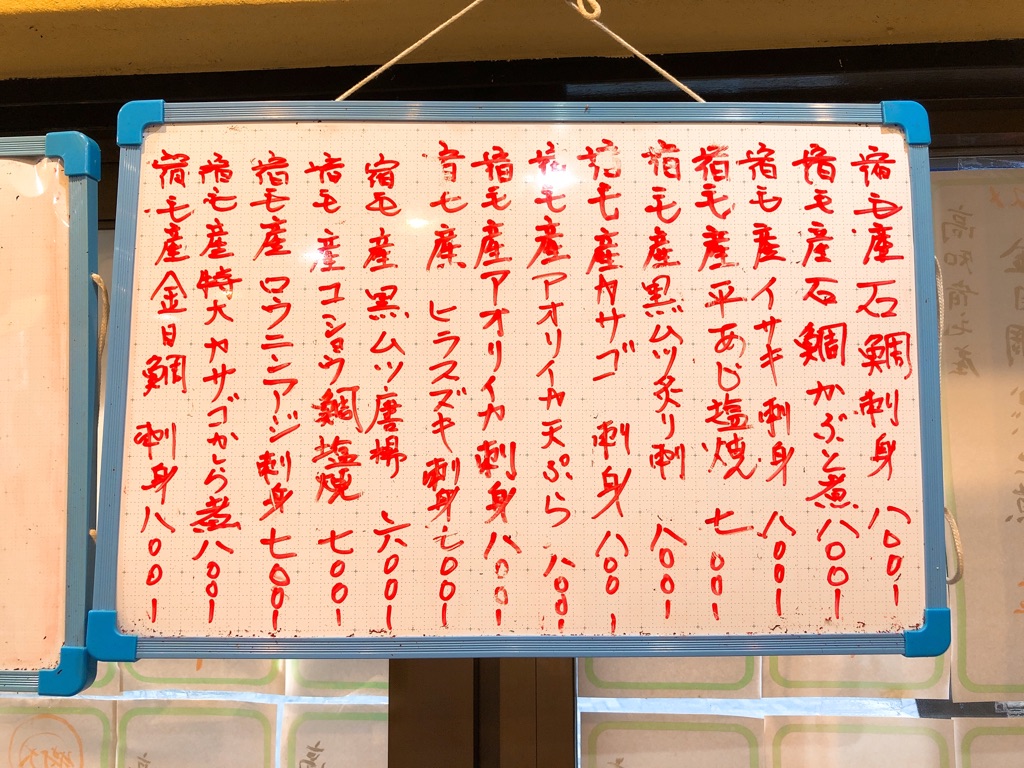 宿毛産石鯛刺身 八〇〇ー
宿毛産石鯛かぶと煮 八〇〇ー
宿毛産イサキ刺身 八〇〇ー
宿毛産平あじ塩焼 七〇〇ー
宿毛産黒ムツ炙り刺 八〇〇ー
宿毛産カサゴ 刺身 八〇〇ー
宿毛産アオリイカ天ぷら 八〇〇ー
宿毛産アオリイカ刺身 八〇〇ー
宿毛産 ヒラスズキ刺身 七〇〇ー
宿毛産黒ムツ唐揚 六〇〇ー
宿毛産コショウ鯛塩焼 七〇〇ー
宿毛産ロウニンアジ刺身 七〇〇ー
宿毛産特大カサゴかしら煮 八〇〇ー
宿毛産金目鯛 刺身 八〇〇ー